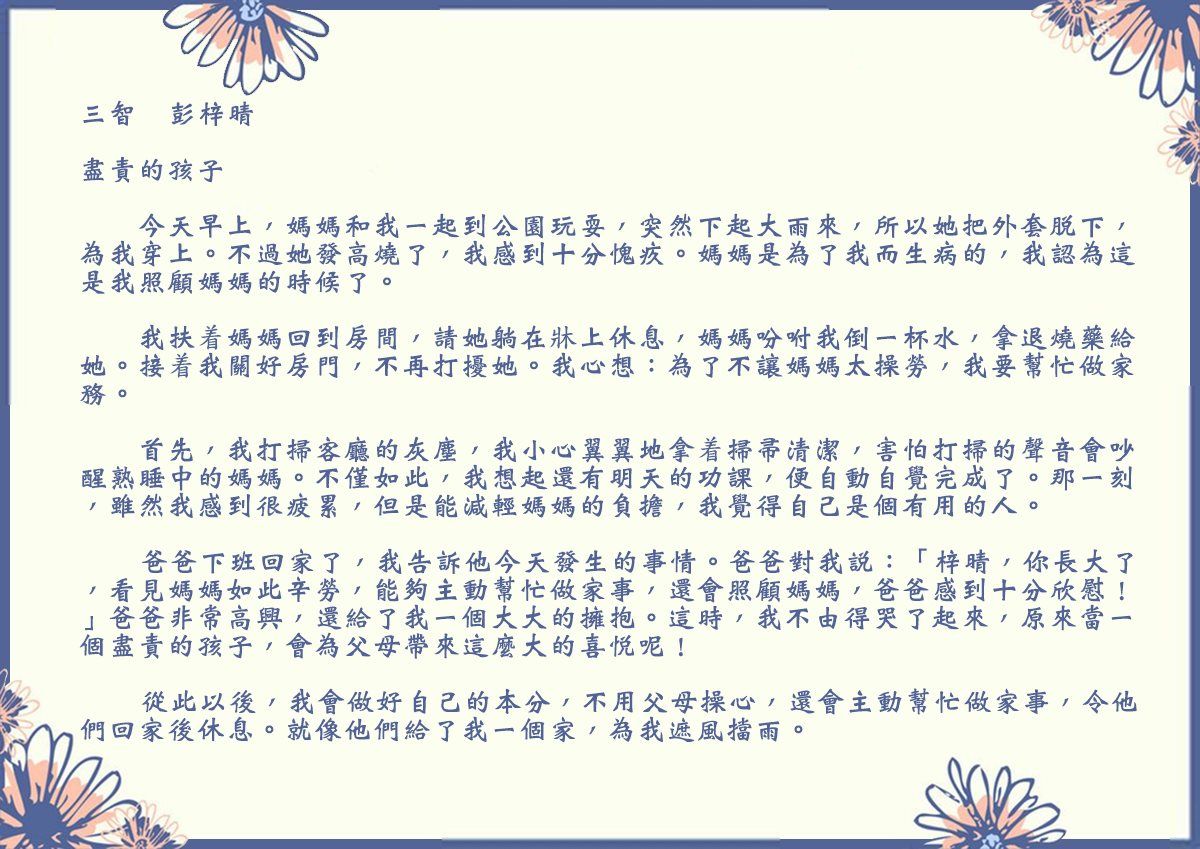 三智　彭梓晴
盡責的孩子
今天早上，媽媽和我一起到公園玩耍，突然下起大雨來，所以她把外套脱下，
為我穿上。不過她發高燒了，我感到十分愧疚。媽媽是為了我而生病的，我認為這
是我照顧媽媽的時候了。
我扶着媽媽回到房間，請她躺在牀上休息，媽媽吩咐我倒一杯水，拿退燒藥給
她。接着我關好房門，不再打擾她。我心想：為了不讓媽媽太操勞，我要幫忙做家
務。
首先，我打掃客廳的灰塵，我小心翼翼地拿着掃帚清潔，害怕打掃的聲音會吵
醒熟睡中的媽媽。不僅如此，我想起還有明天的功課，便自動自覺完成了。那一刻
，雖然我感到很疲累，但是能減輕媽媽的負擔，我覺得自己是個有用的人。
爸爸下班回家了，我告訴他今天發生的事情。爸爸對我説：「梓晴，你長大了
，看見媽媽如此辛勞，能夠主動幫忙做家事，還會照顧媽媽，爸爸感到十分欣慰！
」爸爸非常高興，還給了我一個大大的擁抱。這時，我不由得哭了起來，原來當一
個盡責的孩子，會為父母帶來這麼大的喜悦呢！
從此以後，我會做好自己的本分，不用父母操心，還會主動幫忙做家事，令他
們回家後休息。就像他們給了我一個家，為我遮風擋雨。